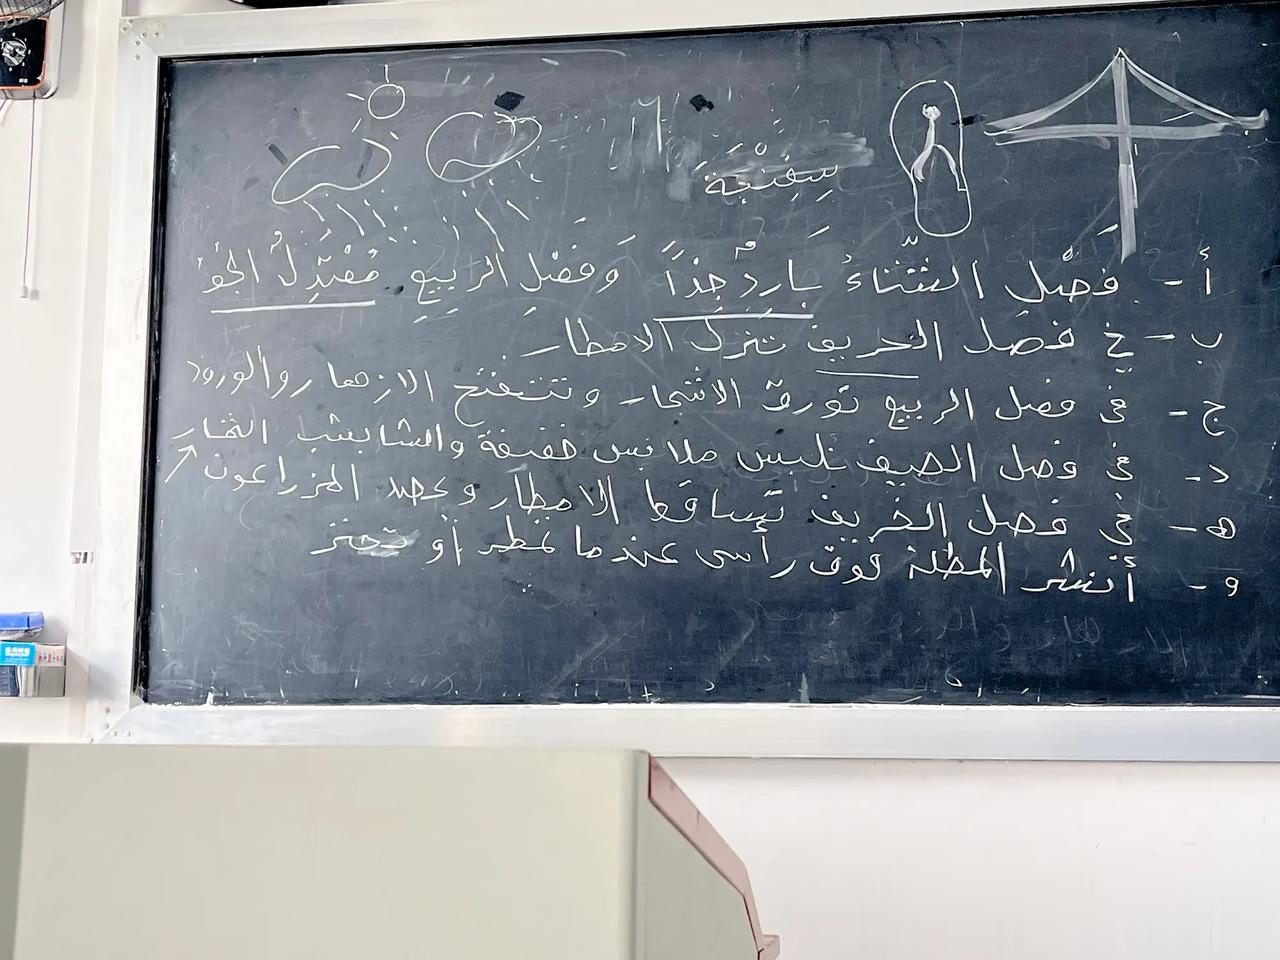 سفنجة
أ - فَصْلِ الشّتاءُ بَارِدْ جِدْاً وَفَصْلِ الرَبِيعِ مُعْتَدِلُ الجَوْ
ب - في فصل الخريف تنزل الامطار
ج - في فصل الربيع تورق الاشجار وتتفتح الازهار والورود
د - في فصل الصيف نلبس ملابس خفيفة والشا بشب
هـ - في فصل الخريف تتساقط الامطار ويحصد المزراعون الثمار
و - أنشر المظلة فوق رأسى عندما تمطر أو